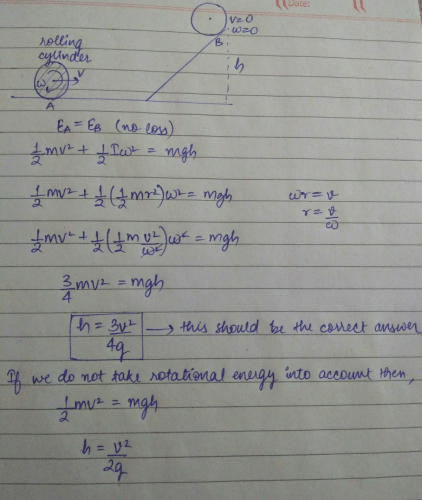 Date:
v=0
ω=0
B
rolling
cylinder
ω
v
h
A
E_A = E_B (no loss)
1/2 mv² + 1/2 Iω² = mgh
1/2 mv² + 1/2 (1/2 mr²) ω² = mgh
ωr = v
r = v/ω
1/2 mv² + 1/2 (1/2 m v²/ω²) ω² = mgh
3/4 mv² = mgh
h = 3v²/4g → this should be the correct answer
If we do not take rotational energy into account then,
1/2 mv² = mgh
h = v²/2g